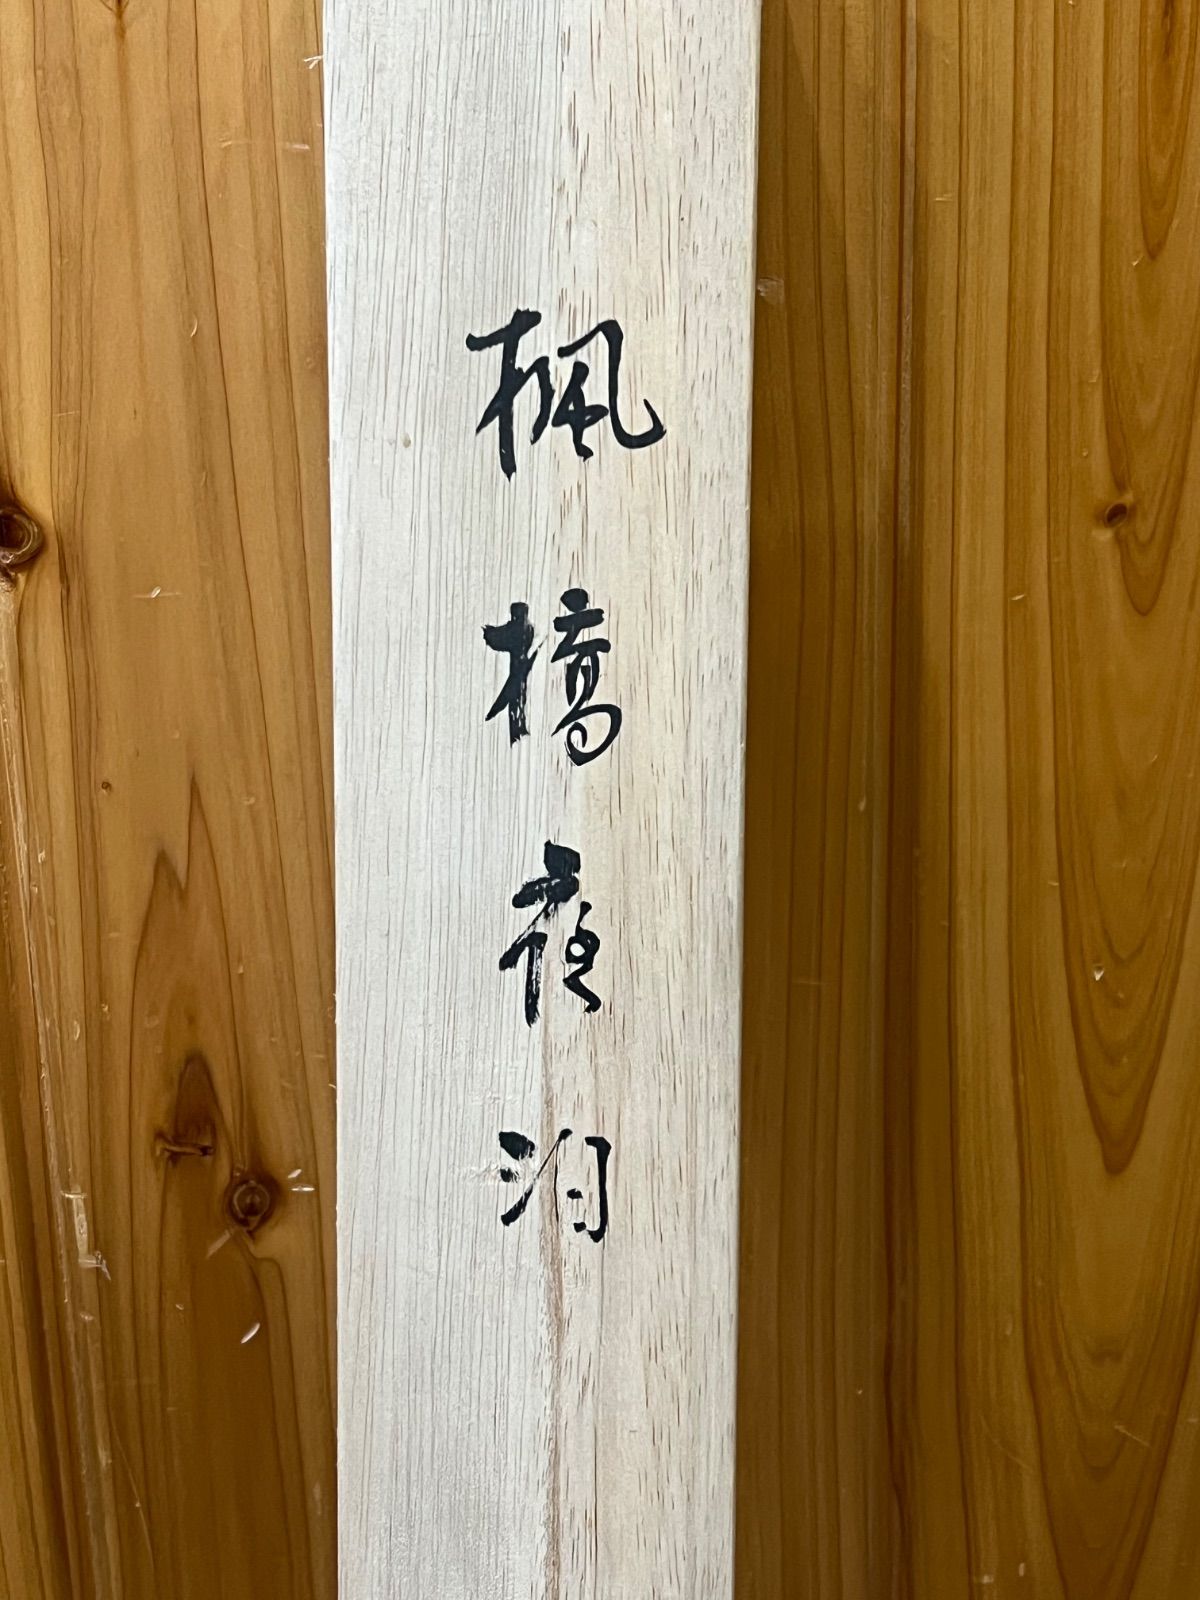 楓橋夜泊